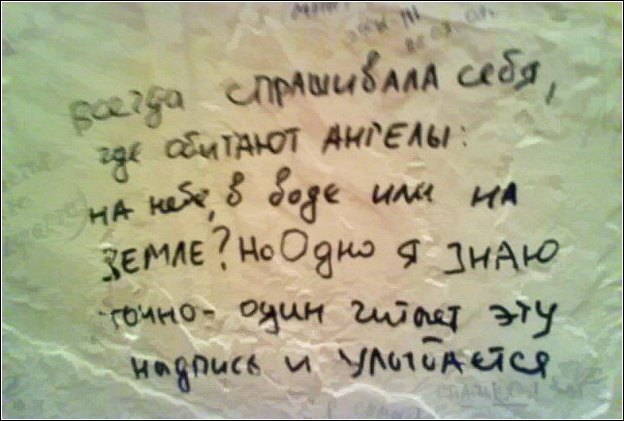 всегда спрашивала себя,
где обитают ангелы:
на небе, в воде или на
земле? Но Одно я знаю
точно - один читает эту
надпись и улыбается